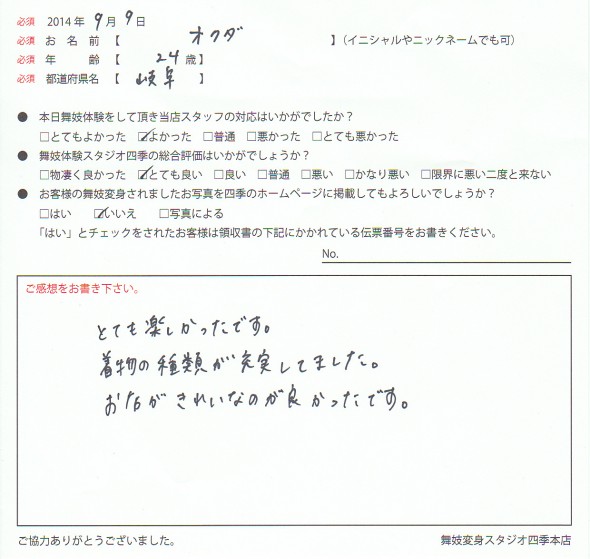 必須 2014年 9月 9日
必須 お名前【 オクダ 】(イニシャルやニックネームでも可)
必須 年齢【 24歳】
必須 都道府県名【 岐阜 】
● 本日舞妓体験をして頂き当店スタッフの対応はいかがでしたか?
□とてもよかった ☑よかった □普通 □悪かった □とても悪かった
● 舞妓体験スタジオ四季の総合評価はいかがでしょうか?
□物凄く良かった ☑とても良い □良い □普通 □悪い □かなり悪い □限界に悪い二度と来ない
● お客様の舞妓変身されましたお写真を四季のホームページに掲載してもよろしいでしょうか?
□はい ☑いいえ □写真による
「はい」とチェックをされたお客様は領収書の下記にかかれている伝票番号をお書きください。
No.
ご感想をお書き下さい。
とても楽しかったです。
着物の種類が充実してました。
おなかがきれいなのが良かったです。
ご協力ありがとうございました。 舞妓変身スタジオ四季本店